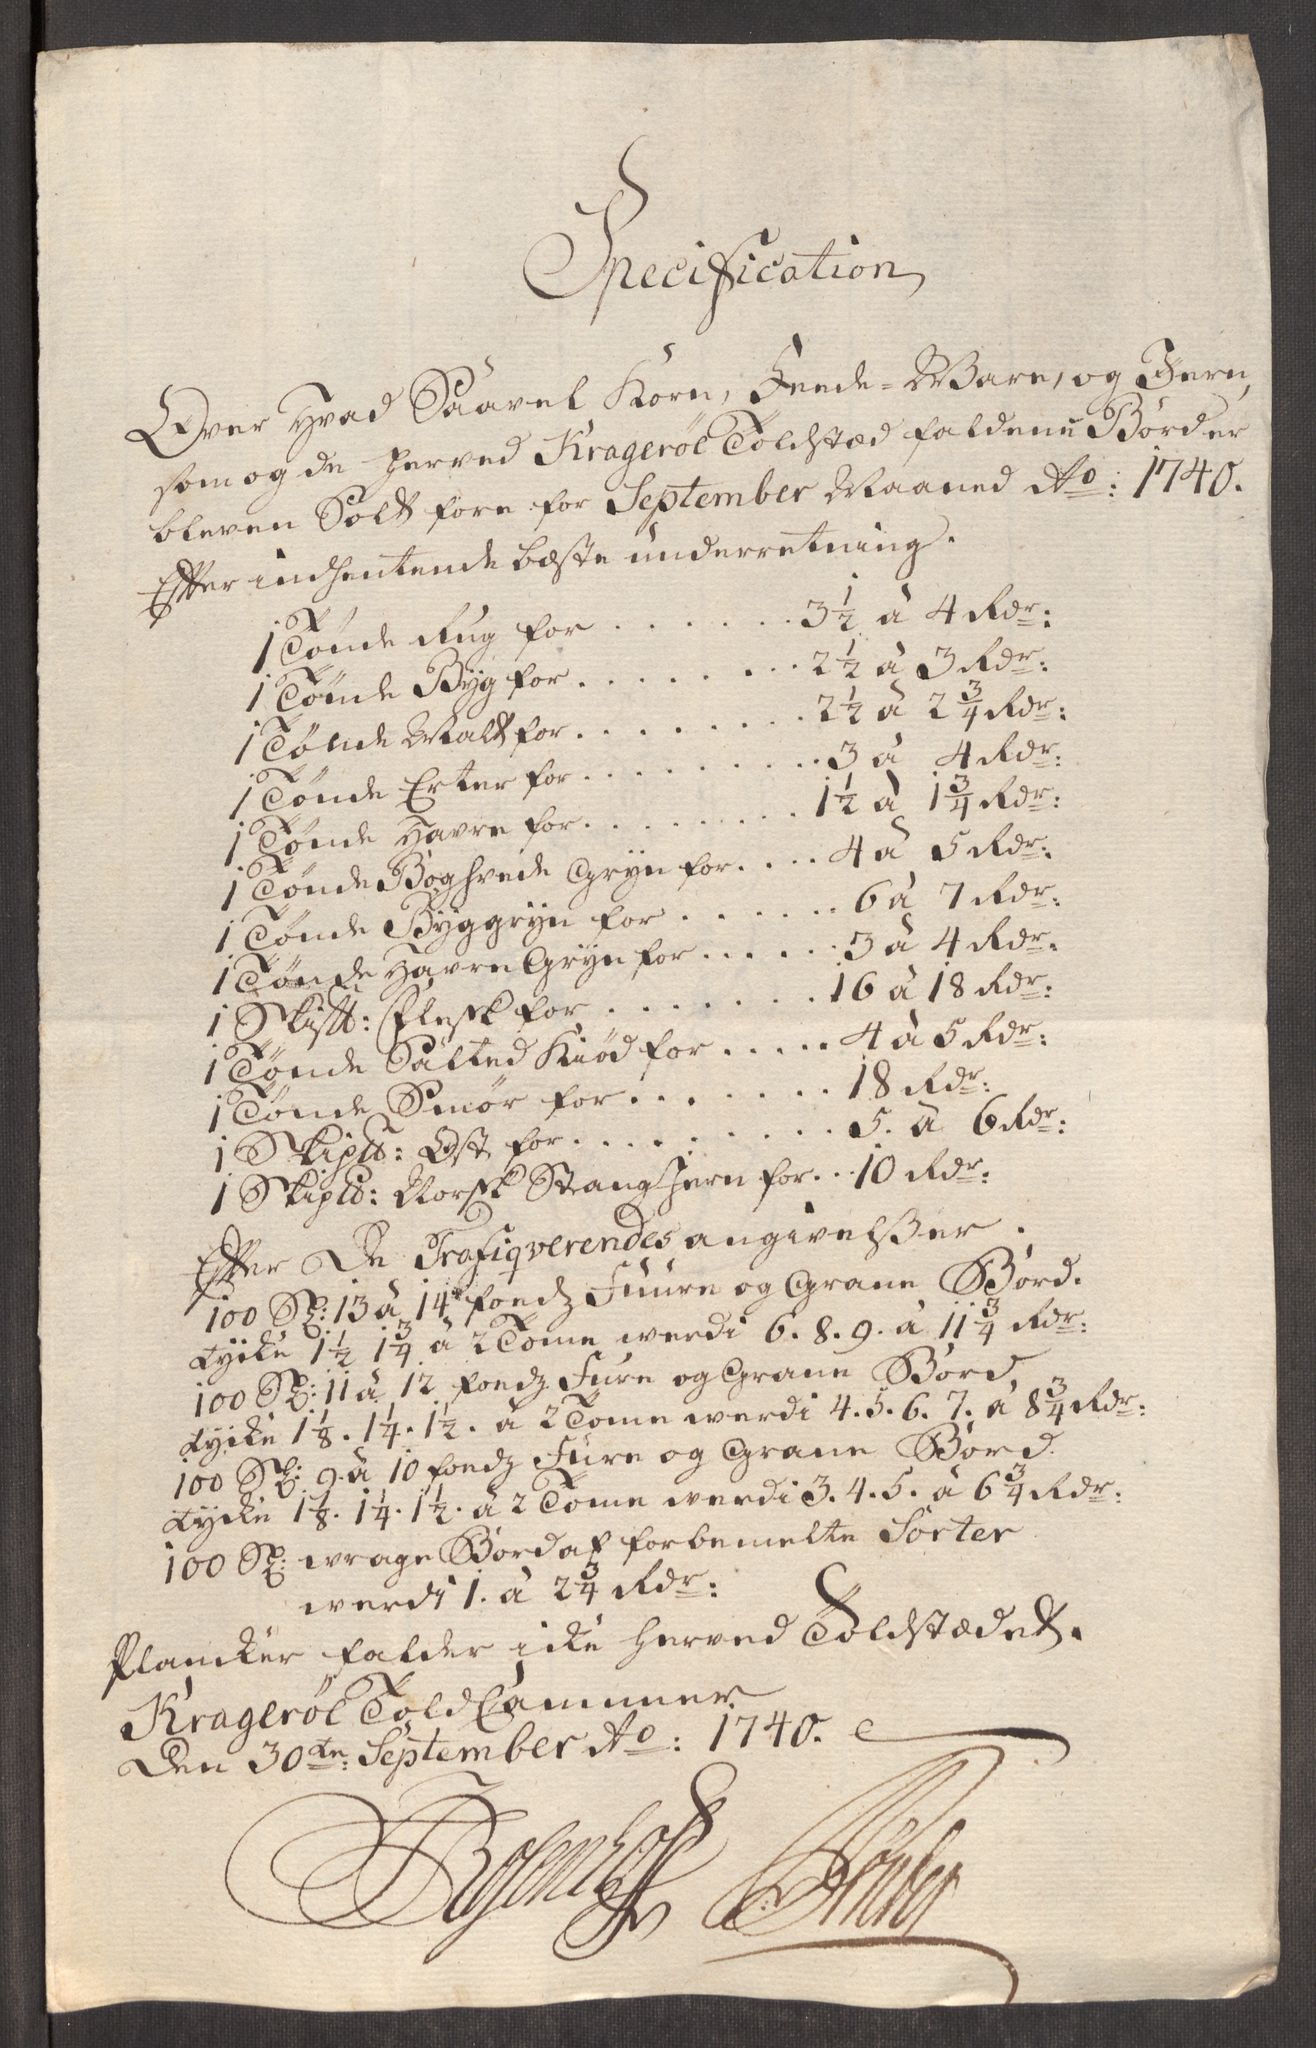 Specification
Over Hvad Saavel Korn, Feede-Ware, og Jern,
som og de herved Krageröe Toldstæd faldene Bord er
bleven Solt fore for September Maaned Ao: 1740.
Efter indhentende beste underretning.
1 Tønde Rug for . . . . . . 3½ â 4 Rdr:
1 Tønde Byg for . . . . . . . 2½ â 3 Rdr:
1 Tønde Malt for . . . . . . . 2½ â 2¾ Rdr:
1 Tønde Erter for . . . . . . . . 3 â 4 Rdr:
1 Tønde Havre for . . . . . . . 1½ â 1¾ Rdr:
1 Tønde Boghvede Gryn for . . . . 4 â 5 Rdr:
1 Tønde Byggryn for . . . . . . 6 â 7 Rdr:
1 Tønde Havre Gryn for . . . . . 3 â 4 Rdr:
1 Skip℔: Flesk for . . . . . . . 16 â 18 Rdr:
1 Tønde Salted Kiød for . . . . . 4 â 5 Rdr:
1 Tønde Smør for . . . . . . . 18 Rdr:
1 Skip℔: Ost for . . . . . . . . 5. â 6 Rdr:
1 Skip℔: Norsk Stang Jern for . . 10 Rdr:
Efter De Trafiqverendes angivelßer.
100 St: 13 â 14 foedz Fuure og Grane Bord.
tycke 1½ 1¾ â 2 Tome werdi 6. 8. 9. â 11¾ Rdr:
100 St: 11 â 12 foedz Fure og Grane Bord,
tycke 1⅛. 1¼. 1½. â 2 Tome werdi 4. 5. 6. 7. â 8¾ Rdr:
100 St: 9. â 10 foedz Fure og Grane Bord
tycke 1⅛. 1¼. 1½. â 2 Tome werdi 3. 4. 5. â 6¾ Rdr:
100 St: wrage Bord af forbemelte Sorter
werdi 1. â 2¾ Rdr:
Plancker falder icke herved Toldstædet.
Krageröe Told Cammer
Den 30te: September Ao: 1740.